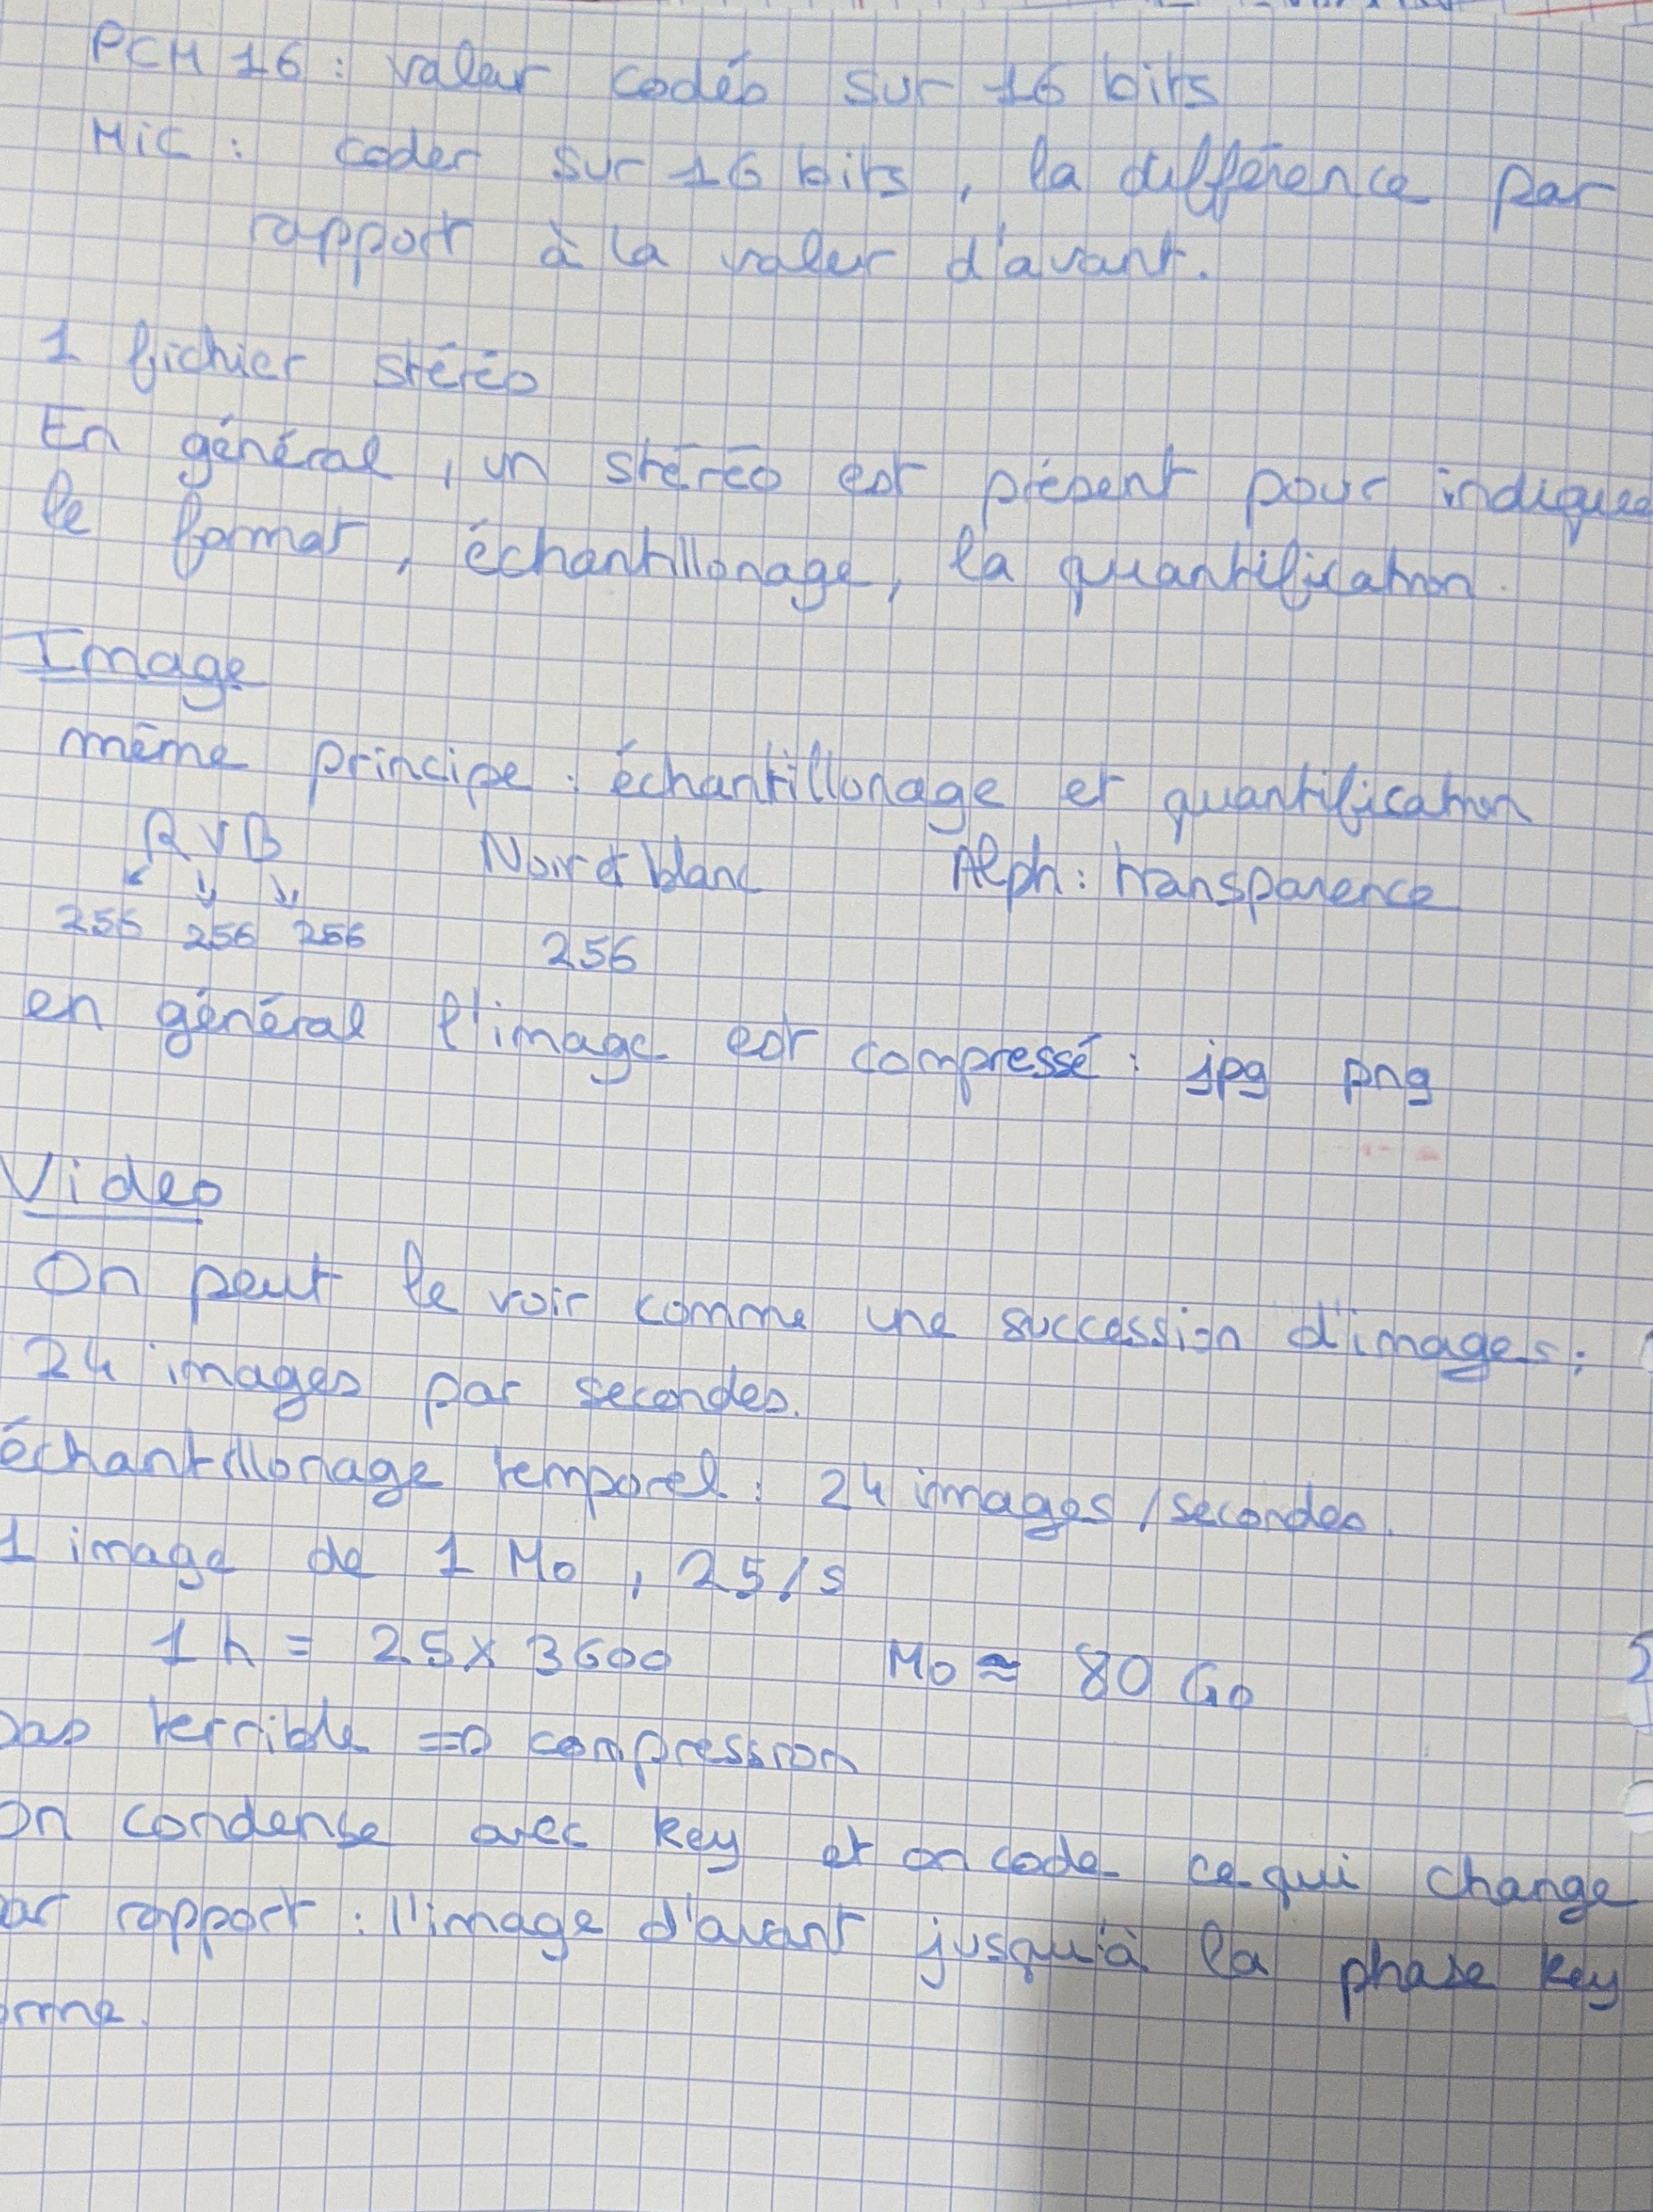 PCM 16 : valeur codés sur 16 bits
MiC : coder sur 16 bits, la différence par
rapport à la valeur d'avant.
1 fichier stéréo
En général, un stéréo est présent pour indiquer
le format, échantillonage, la quantification.
Image
même principe : échantillonage et quantification
R V B Noir et blanc Alph : transparence
256 256 256 256
en général l'image est compressé : jpg png
Video
On peut le voir comme une succession d'images :
24 images par secondes.
échantillonage temporel : 24 images / secondes.
1 image de 1 Mo, 25/s
1 h = 25 x 3600 Mo ≈ 80 Go
pas terrible => compression
On condense avec key et on code ce qui change
par rapport : l'image d'avant jusqu'à la phase key